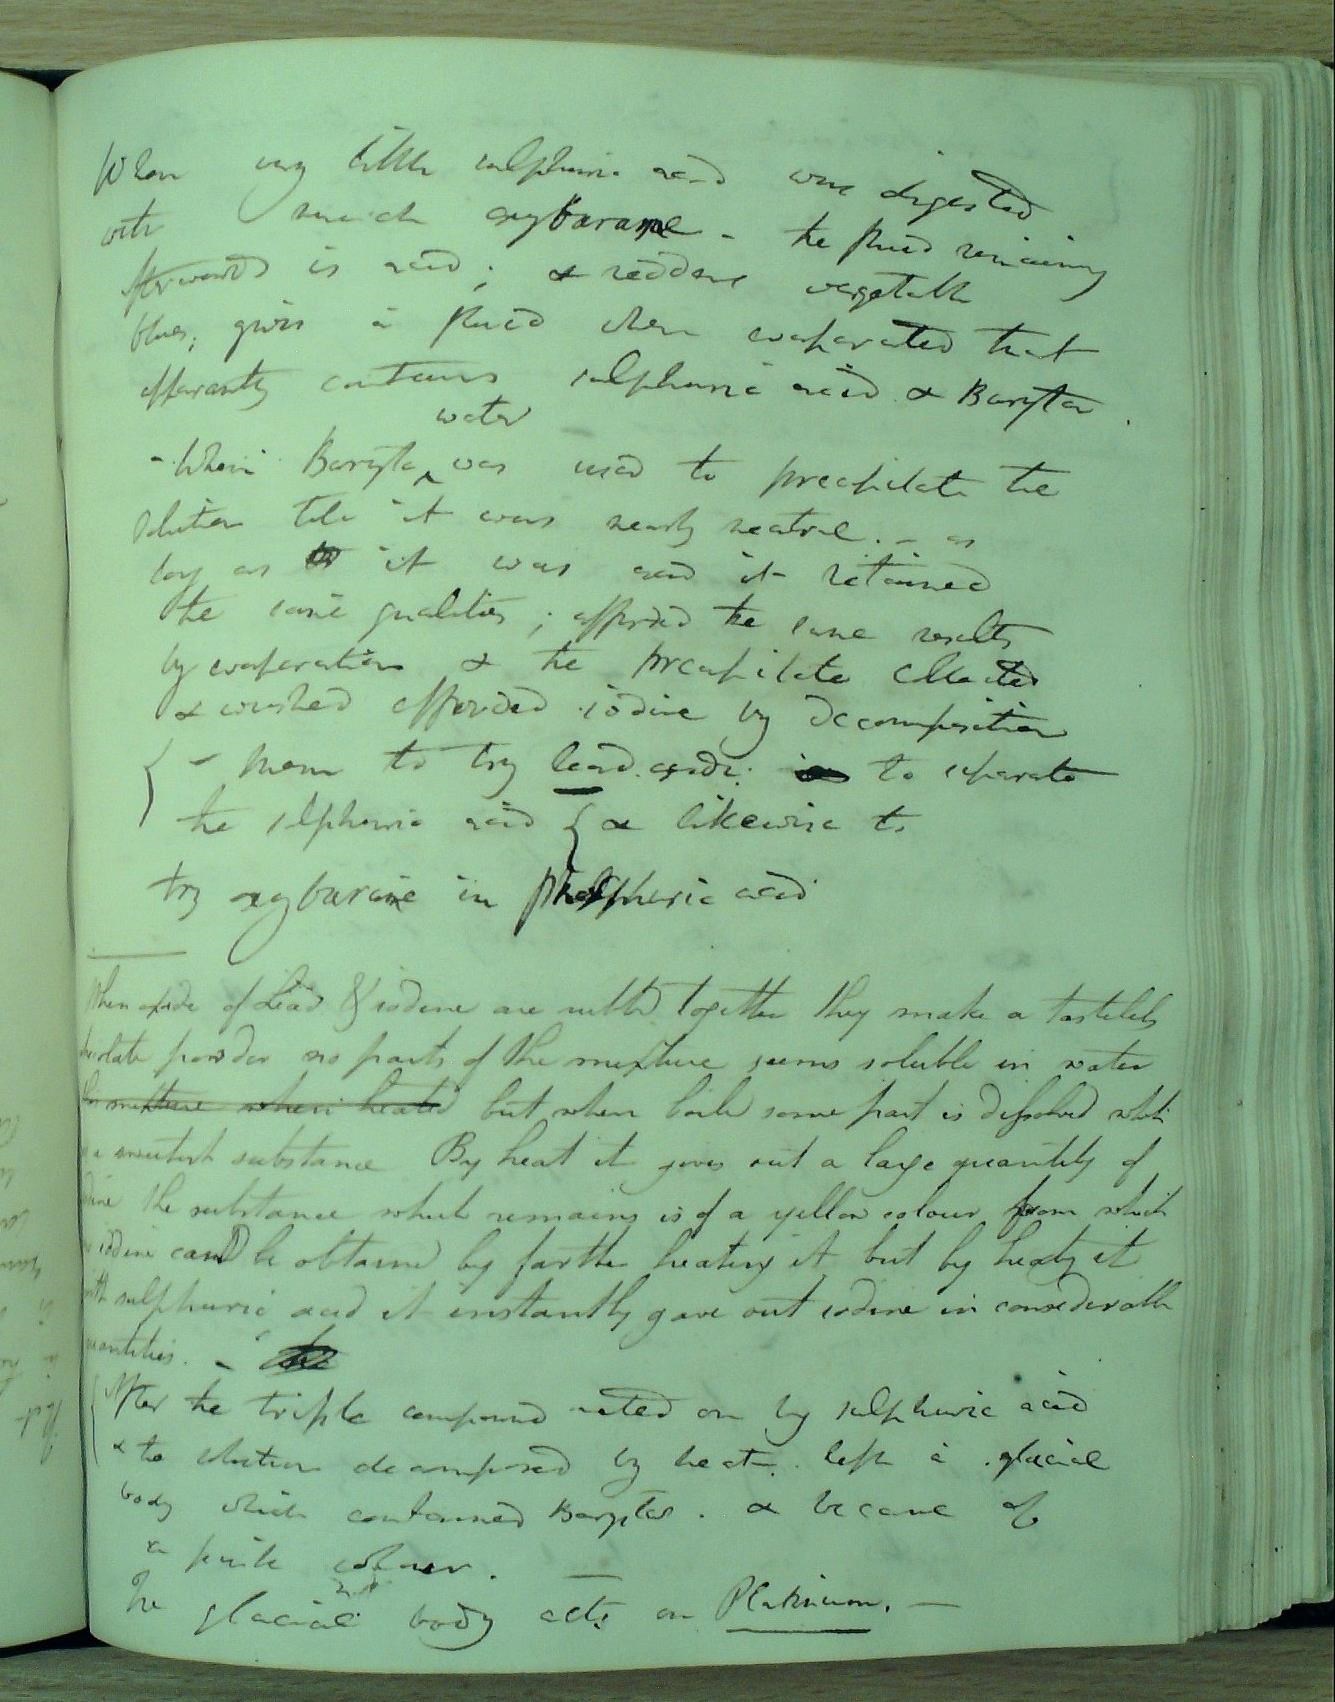 When very little sulphuric acid was digested
with much oxybarane - the fluid remaining
afterwards is acid; & reddens vegetable
blues; gives a fluid when evaporated that
apparently contains sulphuric acid & Barytes.
water
- When Baryta ‸ was used to precapitate the
solution till it was nearly neutral. - as
long as it was acid it retained
the same qualities; afforded the same results
by evaporation & the precapitate collected
& washed afforded iodine by decomposition
{ - Mem to try lead oxide: to separate
the sulphuric acid { & likewise to
try oxybarane in phosphoric acid
When oxide of Lead & iodine are rubbed together they make a tasteless
chocolate powder no parts of the mixture seems soluble in water
this mixture when heated but when boiled some part is dissolved which
is a substance By heat it gives out a large quantity of
iodine the substance which remains is of a yellow colour from which
no iodine can be obtained by farther heating it but by heating it
with sulphuric acid it instantly gave out iodine in considerable
quantities. -
{ After the triple compound acted on by sulphuric acid
& the solution decomposed by heat. left a glacial
body which contained Barytes. & became of
a pink colour. —
The glacial body acts on Platinum. —